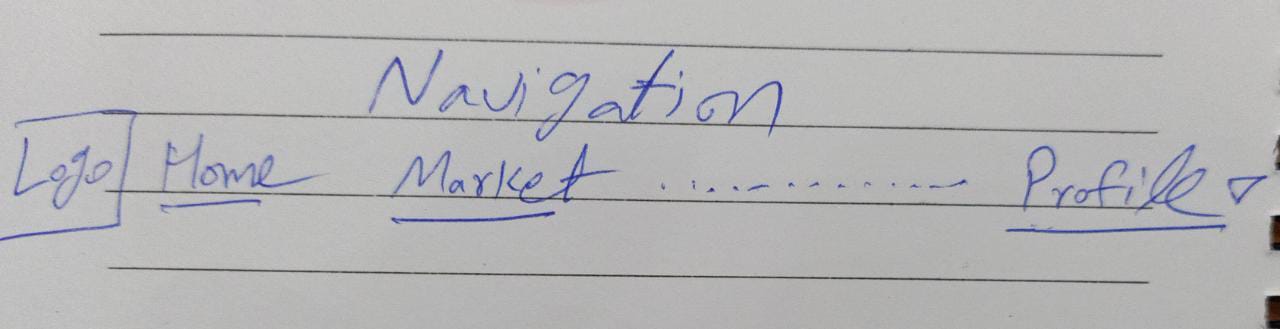 Navigation
Logo Home Market ................ Profile ▽